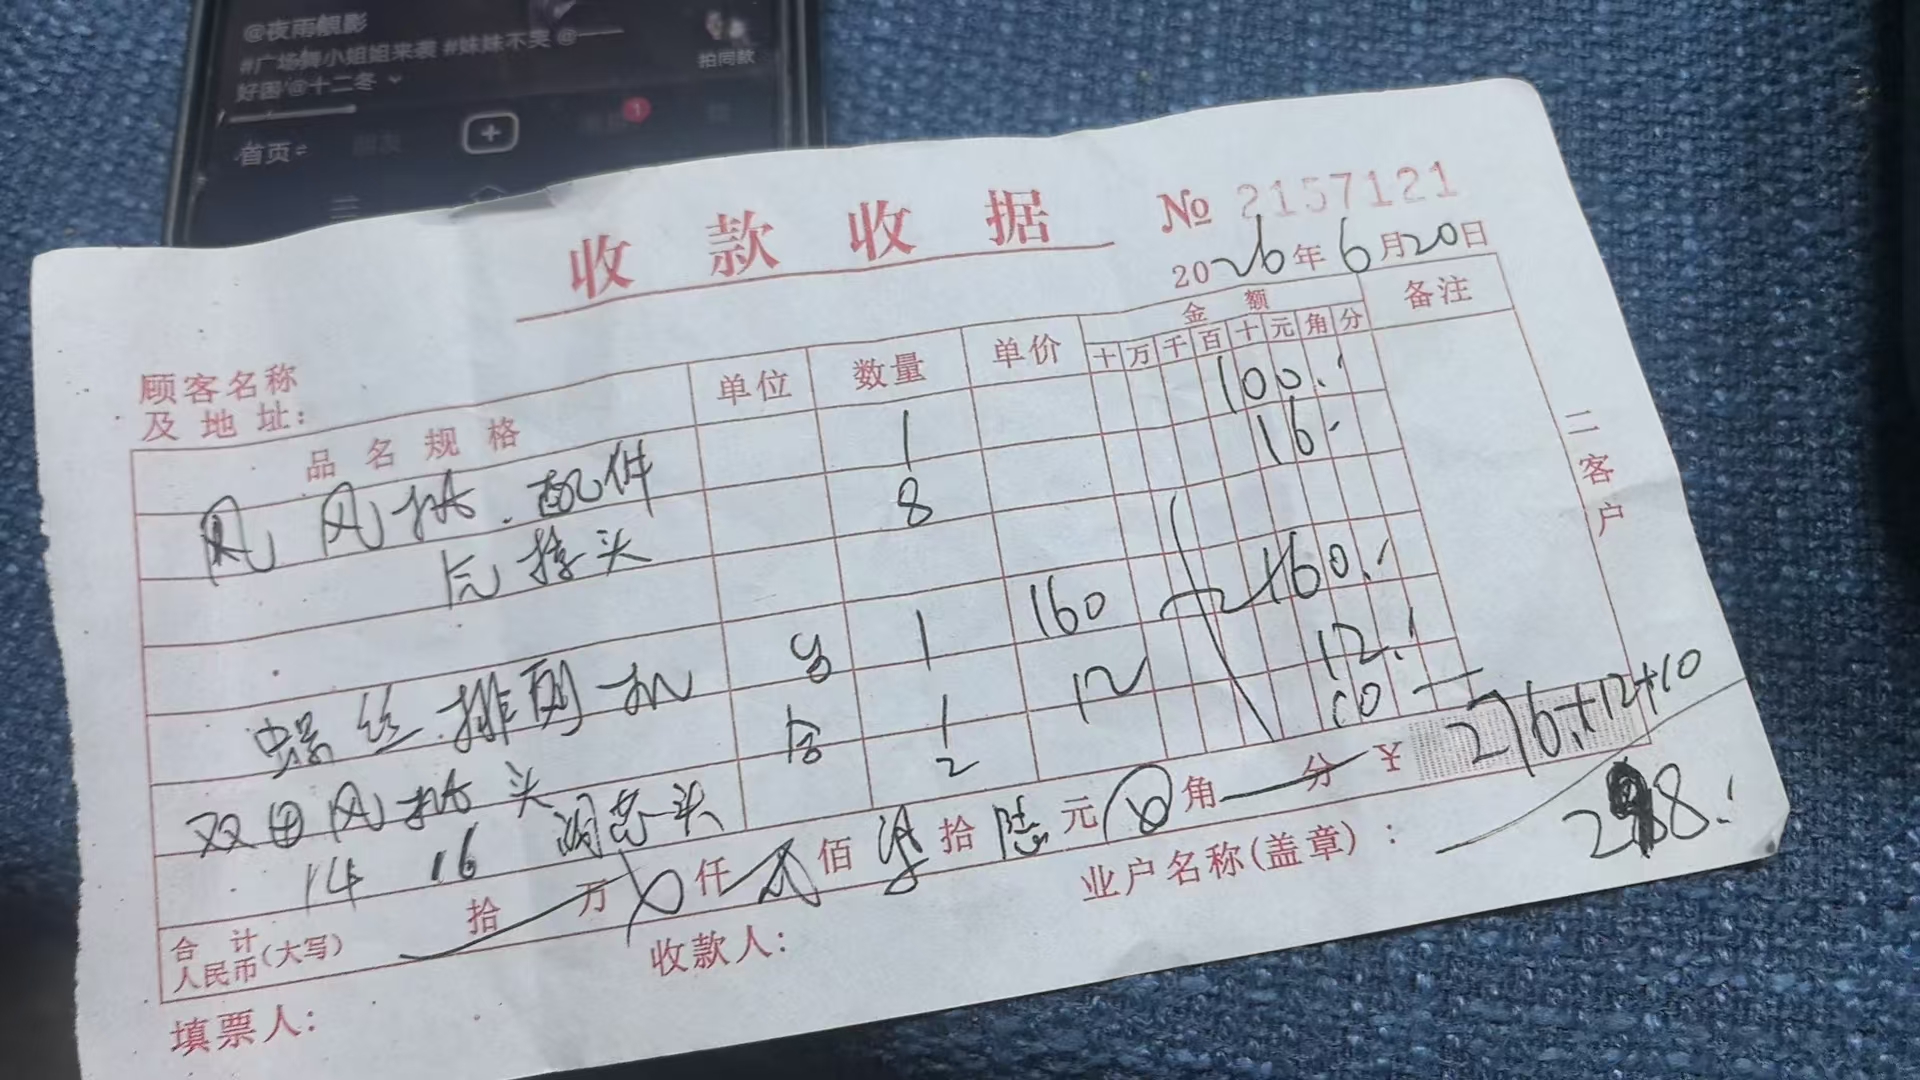 @夜雨靓影
#广场舞小姐姐来袭 #妹妹不哭 @一一
好困 @十二冬
拍同款
首页
1
收款收据
№ 2157121
2026年6月20日
顾客名称
及地址:
品名规格 单位 数量 单价 金额 备注
十万千百十元角分
风 风批.配件 1 100.
气接头 8 16.
螺丝排列机 台 1 160 160.
双用风批头 1 12 12.
14 16 头 2 10
合计
人民币(大写) 拾 万 仟 贰佰 柒拾 陆元 角 分 ¥ 276.+12+10
298.
填票人: 收款人: 业户名称(盖章):
二客户